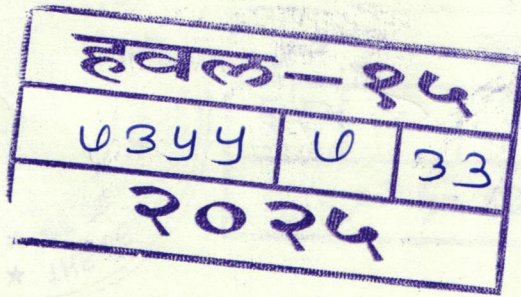 हवल-१५
७३५५ ७ ३३
२०२५